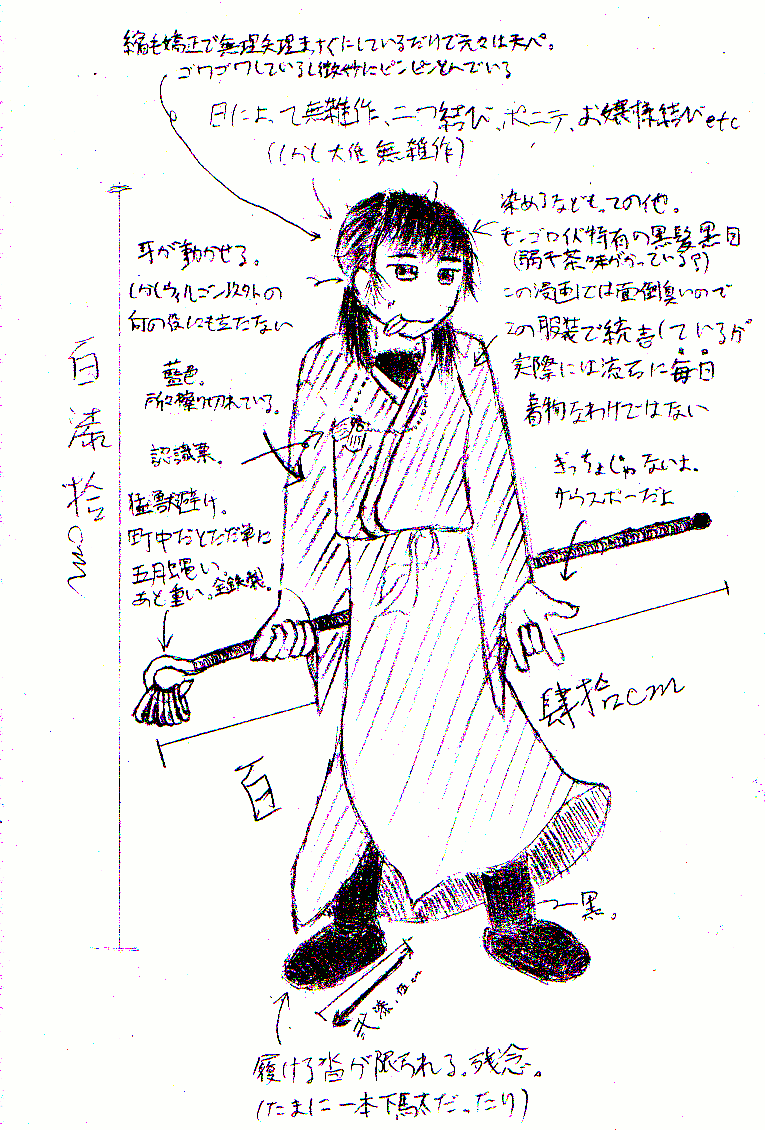 縮毛矯正で無理矢理まっすぐにしているだけで元々は天パ。
ゴワゴワしているし微妙にピンピンとんでいる
日によって無雑作、二つ結び、ポニテ、お嬢様結びetc
(しかし大低無雑作)
染めるなどもっての他。
モンゴロイド特有の黒髪黒目
(若干茶味がかっている?)
この漫画では面倒臭いので
この服装で統一しているが
実際には流石に毎日
着物なわけではない
耳が動かせる。
しかしウィルゴン以外の
何の役にも立たない
藍色。
所々擦り切れている。
認識票。
猛獣避け。
町中だとただ単に
五月蝿い。
あと重い。金鉄製。
ぎっちょじゃないよ。
クロスボーだよ
百漆拾cm
肆拾cm
百
黒。
履ける沓が限られる。残念。
(たまに一本下駄だったり)